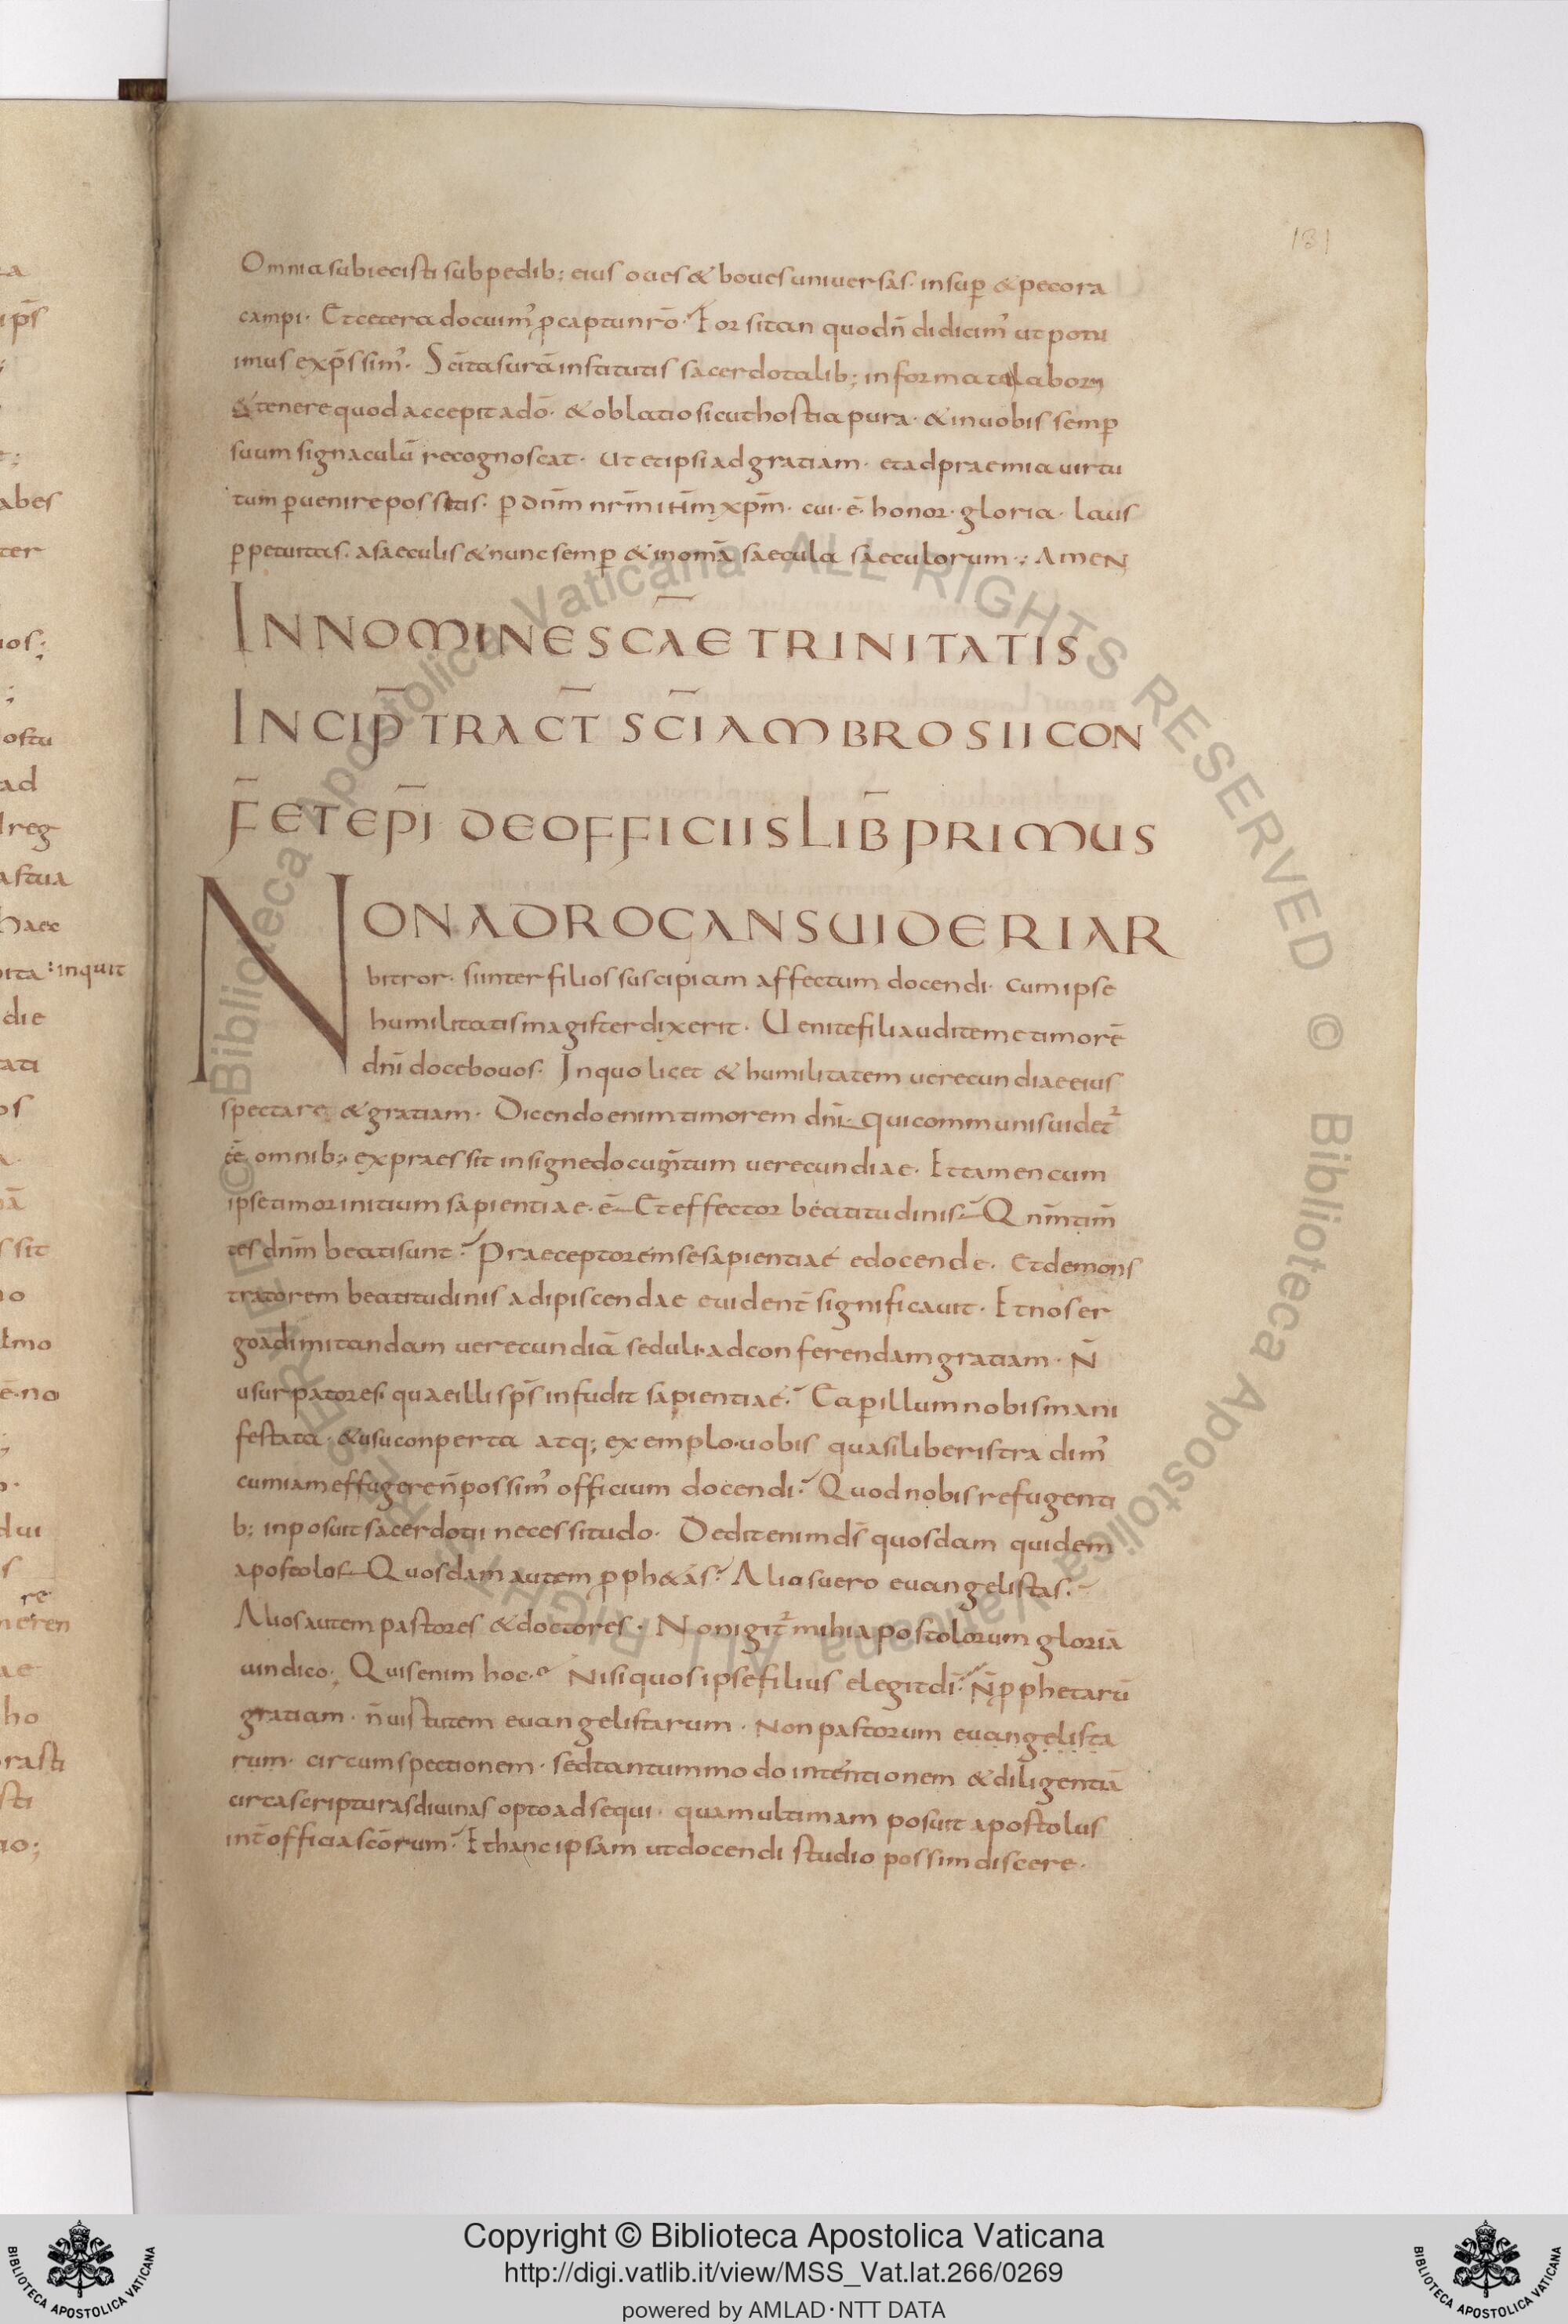 ra
ips̄
;
t;
abes
ter
uos;
;
ostu
ad
reg
astua
haec
ita: inquit
die
tati
os
a.
mā
ssit
no
timo
ē. no
;
dui
s
re
neren
ae
ho
rasti
sti
tio;
181
Omnia subiecisti subpedib; eius oues & boues uniuersas. insup̄ & pecora
campi. Et cetera docuim᾽ ꝓ captu nr̄o. Forsitan quod n̄ didicim᾽ ut potu
imus exp̄ssim᾽. Scīta sua institutis sacerdotalib; informata labor
& tenere quod accepit a dō. & oblatio sicut hostia pura. & in uobis semp̄
suum signaculū recognoscat. ut et ipsi ad gratiam. et ad praemia uirtu
tum ꝑuenire possitis. ꝑ dn̄m nr̄m ih̄m xp̄m. cui. ē. honor. gloria. laus
ꝑpetuitas. a saeculis & nunc semꝑ & in omā saecula saeculorum:; AMEN
IN NOMINE SC̄AE TRINITATIS
INCIP̄ TRACT̄ SC̄I AMBROSII CON
F̄ ET EP̄I DE OFFICIIS LIB̄ PRIMUS
NON ADROGANS UIDERI AR
bitror. si inter filios suscipiam affectum docendi. cum ipse
humilitatis magister dixerit. Uenite fili audite me timorē
dn̄i docebo uos. In quo licet & humilitatem uerecundiae eius
spectare & gratiam. Dicendo enim timorem dn̄i. qui communis uidet᾽
eē omnib; expraessit insigne docum̄tum uerecundiae. Et tamen cum
ipse timor initium sapientiae. ē. Et effector beatitudinis. Qn̄m tim̄
tes dn̄m beati sunt. Praeceptorem se sapientiae edocende. Et demons
tratorem beatitudinis adipiscendae euident̄ significauit. Et nos er
go ad imitandam uerecundiā seduli. ad conferendam gratiam. N̄
usurpatores. quae illi sp̄s infudit sapientiae. Ea ꝑ illum nobis mani
festata. & usu conperta atq; exemplo. uobis quasi liberis tradim᾽
cum iam effugere n̄ possim᾽ officium docendi. Quod nobis refugenti
b; inposuit sacerdotii necessitudo. Dedit enim ds̄ quosdam quidem
apostolos. Quosdam autem ꝓph&as. Alios uero euangelistas.
Alios autem pastores & doctores. Non igit᾽ mihi apostolorum gloriā
uindico. Quis enim hoc. Nisi quos ipse filius elegit dī. N̄ ꝓphetarū
gratiam. n̄ uirtutem euangelistarum. Non pastorum euangelista
rum. circumspectionem. sed tantummodo intentionem & diligentiā
circa scripturas diuinas opto adsequi. quam ultimam posuit apostolus
int̄ officia scōrum. Et hanc ipsam ut docendi studio possim discere.
© Biblioteca Apostolica Vaticana ALL RIGHTS RESERVED © Biblioteca Apostolica Vaticana ALL RIGHTS RESERVED
BIBLIOTECA APOSTOLICA VATICANA
Copyright © Biblioteca Apostolica Vaticana
http://digi.vatlib.it/view/MSS_Vat.lat.266/0269
powered by AMLAD·NTT DATA
BIBLIOTECA APOSTOLICA VATICANA